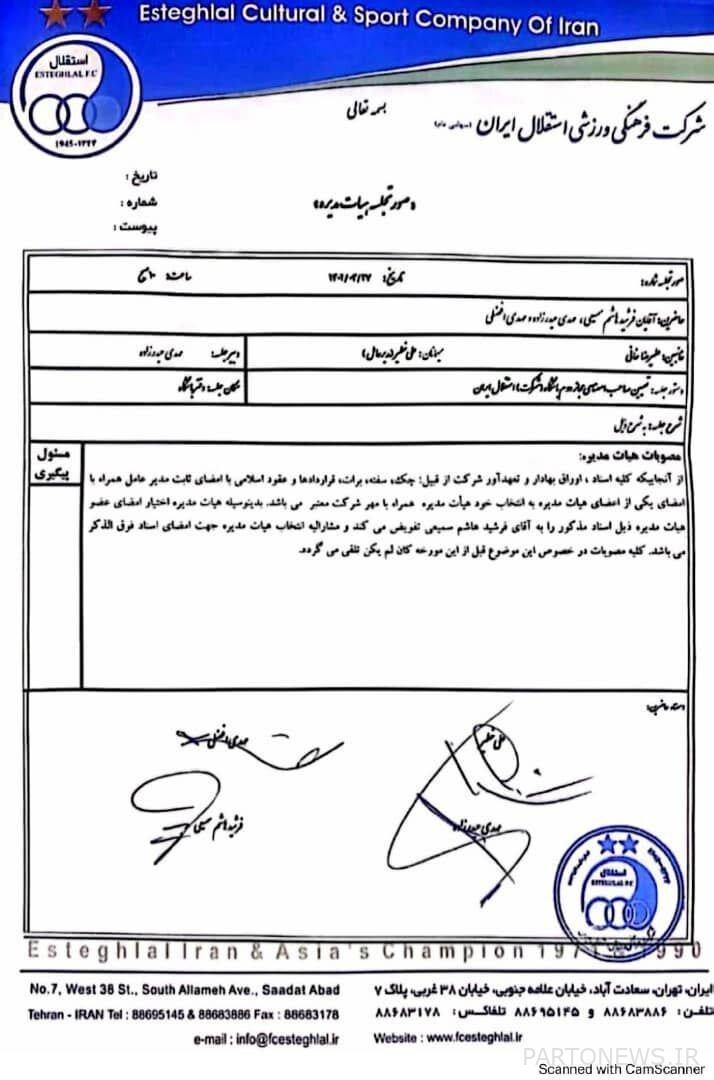 Esteghlal Cultural & Sport Company Of Iran
استقلال
ESTEGHLAL F.C
۱۹۴۵-۱۳۲۴
بسمه تعالی
شرکت فرهنگی ورزشی استقلال ایران (سهامی عام)
تاریخ :
شماره :
پیوست :
«صورتجلسه هیات مدیره»
صورتجلسه شماره: تاریخ: ساعت: ۱۰ صبح
حاضرین: آقایان فرشید هاشم سمیعی، مهدی حیدرزاده و مهدی افضلی
غایبین: علیرضا خانی میهمان: علی خطیر (مدیرعامل) دبیر جلسه: مهدی حیدرزاده
دستور جلسه: تعیین صاحب امضای مجاز دوم باشگاه (شرکت) استقلال ایران مکان جلسه: دفتر باشگاه
شرح جلسه: به شرح ذیل
مصوبات هیات مدیره:
مسئول پیگیری
از آنجاییکه کلیه اسناد ، اوراق بهادار و تعهدآور شرکت از قبیل: چک، سفته، برات، قراردادها و عقود اسلامی با امضای ثابت مدیر عامل همراه با
امضای یکی از اعضای هیات مدیره به انتخاب خود هیأت مدیره همراه با مهر شرکت معتبر می باشد. بدینوسیله هیات مدیره اختیار امضای عضو
هیات مدیره ذیل اسناد مذکور را به آقای فرشید هاشم سمیعی تفویض می کند و مشارالیه انتخاب هیات مدیره جهت امضای اسناد فوق الذکر
می باشد. کلیه مصوبات در خصوص این موضوع قبل از این مورخه کان لم یکن تلقی می گردد.
علی خطیر
مهدی افضلی
مهدی حیدرزاده
فرشید هاشم سمیعی
استقلال
ESTEGHLAL F.C
Esteghlal Iran & Asia's Champion 1971 & 1990
ایران، تهران، سعادت آباد، خیابان علامه جنوبی، خیابان ۳۸ غربی، پلاک ۷
تلفن: ۸۸۶۸۳۸۸۶ و ۸۸۶۹۵۱۴۵ تلفاکس: ۸۸۶۸۳۱۷۸
Website : www.fcesteghlal.ir
No.7, West 38 St., South Allameh Ave., Saadat Abad
Tehran - IRAN Tel : 88695145 & 88683886 Fax : 88683178
e-mail : info@fcesteghlal.ir
PARTONEWS.IR
Scanned with CamScanner